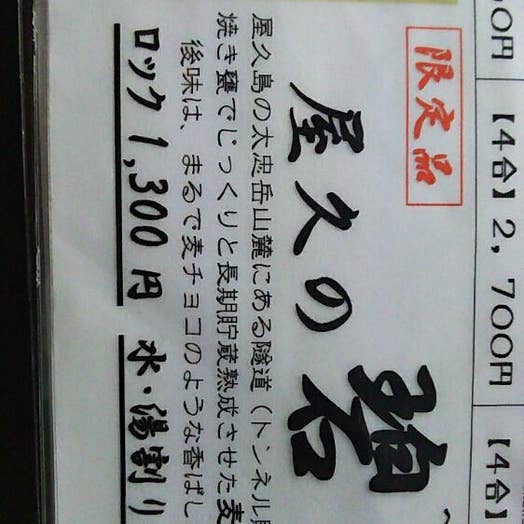 00円 【4合】2,700円 【4合】
限定品
屋久の碧
屋久島の太忠岳山麓にある隧道(トンネル
焼き甕でじっくりと長期貯蔵熟成させた麦
後味は、まるで麦チョコのような香ばし
ロック 1,300円 水・湯割り